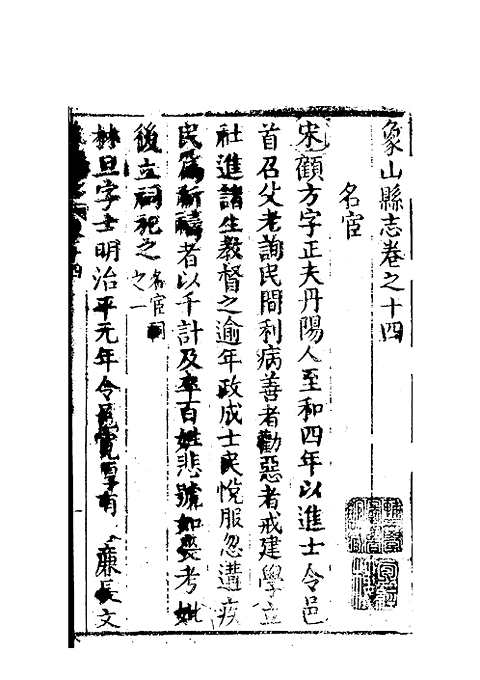 象山縣志卷之十四
名宦
宋顧方字正夫丹陽人至和四年以進士令邑
首召父老詢民間利病善者勸惡者戒建學立
社進諸生教督之逾年政成士民悅服忽遘疾
民爲祈禱者以千計及卒百姓悲號如喪考妣
後立祠祀之名宦祠之一
林旦字士明治平元年令邑寬厚有 廉長文